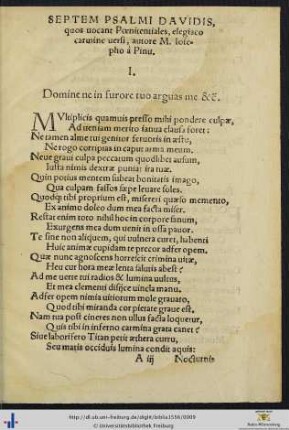 SEPTEM PSALMI DAVIDIS,
quos uocant Pœnitentiales, elegiaco
carmine uersi, autore M. Iose-
pho à Pinu.
I.
Domine ne in furore tuo arguas me &c.
MVltiplicis quamuis presso mihi pondere culpæ,
Ad ueniam merito ianua clausa foret:
Ne tamen alme tui genitor feruoris in æstu,
Ne rogo corripias in caput arma meum.
Neue graui culpa peccatum quodlibet ausum,
Iusta nimis dextræ puniat ira tuæ.
Quin potius mentem subeat bonitatis imago,
Qua culpam fassos sæpe leuare soles.
Quodq; tibi proprium est, miserêri quæso memento,
Ex animo doleo dum mea facta miser.
Restat enim toto nihil hoc in corpore sanum,
Exurgens mea dum uenit in ossa pauor.
Te sine non aliquem, qui uulnera curet, habenti
Huic animæ cupidam te precor adfer opem.
Quæ nunc agnoscens horrescit crimina uitæ,
Heu cur hota meæ lenta salutis abest?
Ad me uerte tui radios & lumina uultus,
Et mea clementi disijce uincla manu.
Adfer opem nimis uitiorum mole grauato,
Quod tibi miranda cor pietate graue est.
Nam tua post cineres non ullus facta loquetur,
Quis tibi in inferno carmina grata canet?
Siue laborifero Titan petit æthera curru,
Seu matis occiduis lumina condit aquis:
A iij Nocturnis
http://dl.ub.uni-freiburg.de/diglit/biblia1536/0009
© Universitätsbibliothek Freiburg